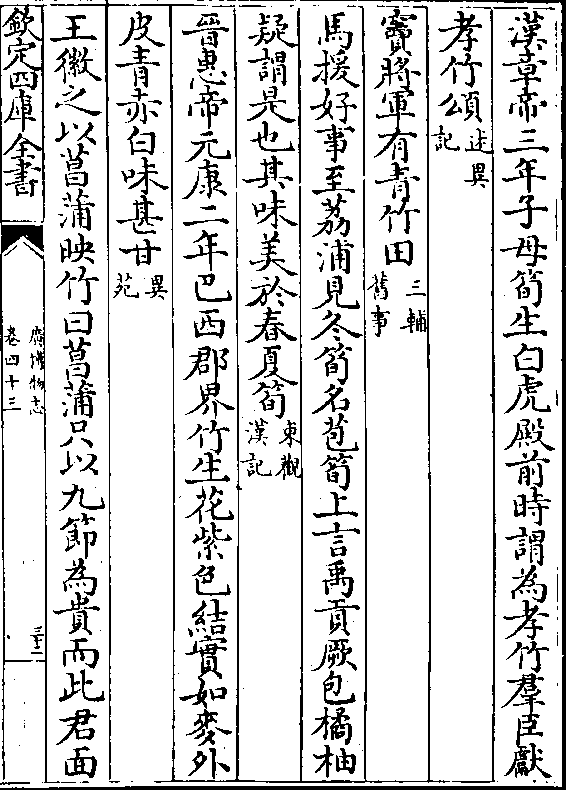 漢章帝三年子母筍生白虎殿前時謂為孝竹羣臣獻
孝竹頌述異記
竇將軍有青竹田三輔舊事
馬援好事至荔浦見冬筍名苞筍上言禹貢厥包橘柚
疑謂是也其味美於春夏筍東觀漢記
晉惠帝元康二年巴西郡界竹生花紫色結實如麥外
皮青赤白味甚甘異苑
王徽之以菖蒲映竹曰菖蒲只以九節為貴而此君面
欽定四庫全書
廣博物志
卷四十三